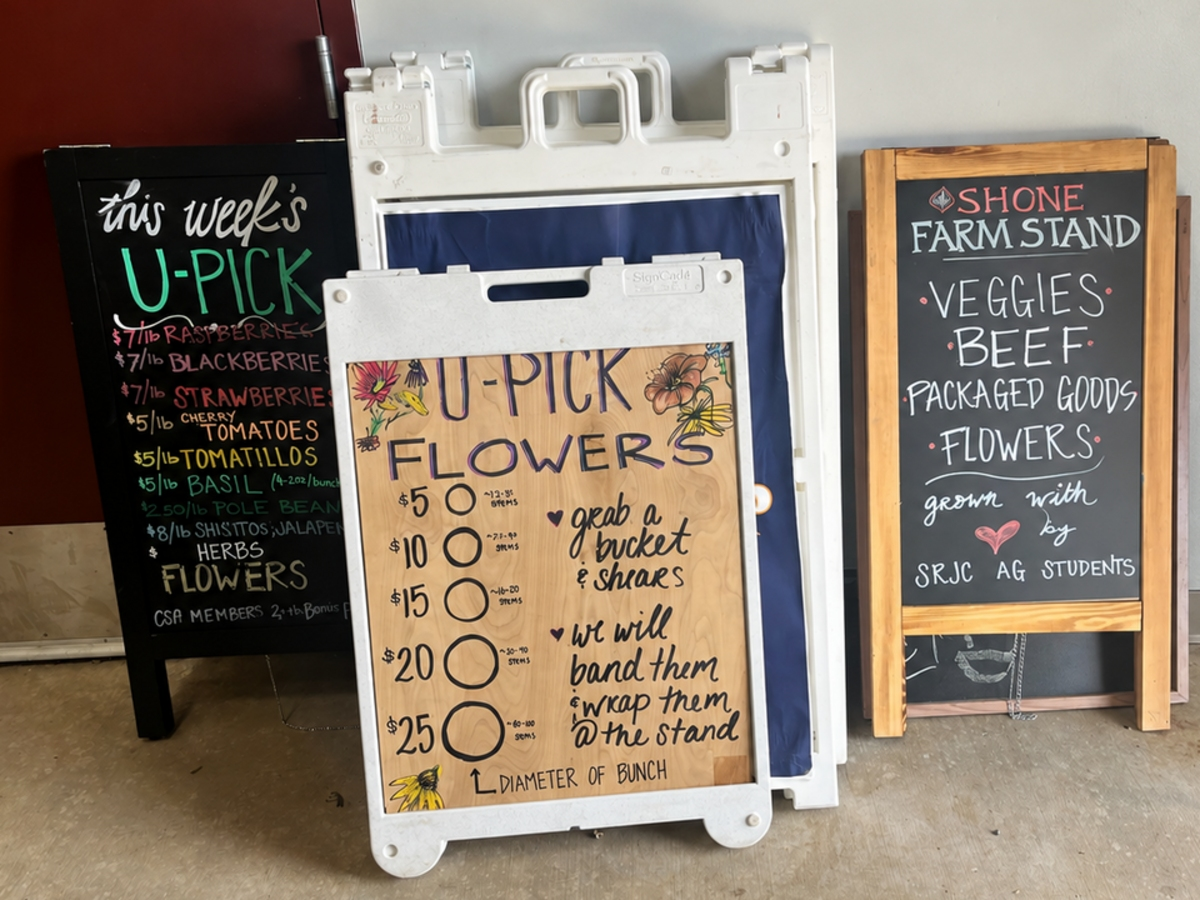 this week's
U-PICK
$7/lb RASPBERRIES
$7/lb BLACKBERRIES
$7/lb STRAWBERRIES
$5/lb CHERRY
TOMATOES
$5/lb TOMATILLOS
$5/lb BASIL (4-2oz/bunch
$2.50/lb POLE BEAN
$8/lb SHISITOS; JALAPEN
$ HERBS
FLOWERS
CSA MEMBERS Bonus
Sign
U-PICK
FLOWERS
$5
stems
$10
stems
$15
stems
$20
stems
$25
stems
DIAMETER OF BUNCH
♥ grab a
bucket
& shears
♥ we will
band them
& wrap them
@ the stand
SHONE
FARM STAND
VEGGIES
BEEF
PACKAGED GOODS
FLOWERS
grown with
♥ by
SRJC AG STUDENTS